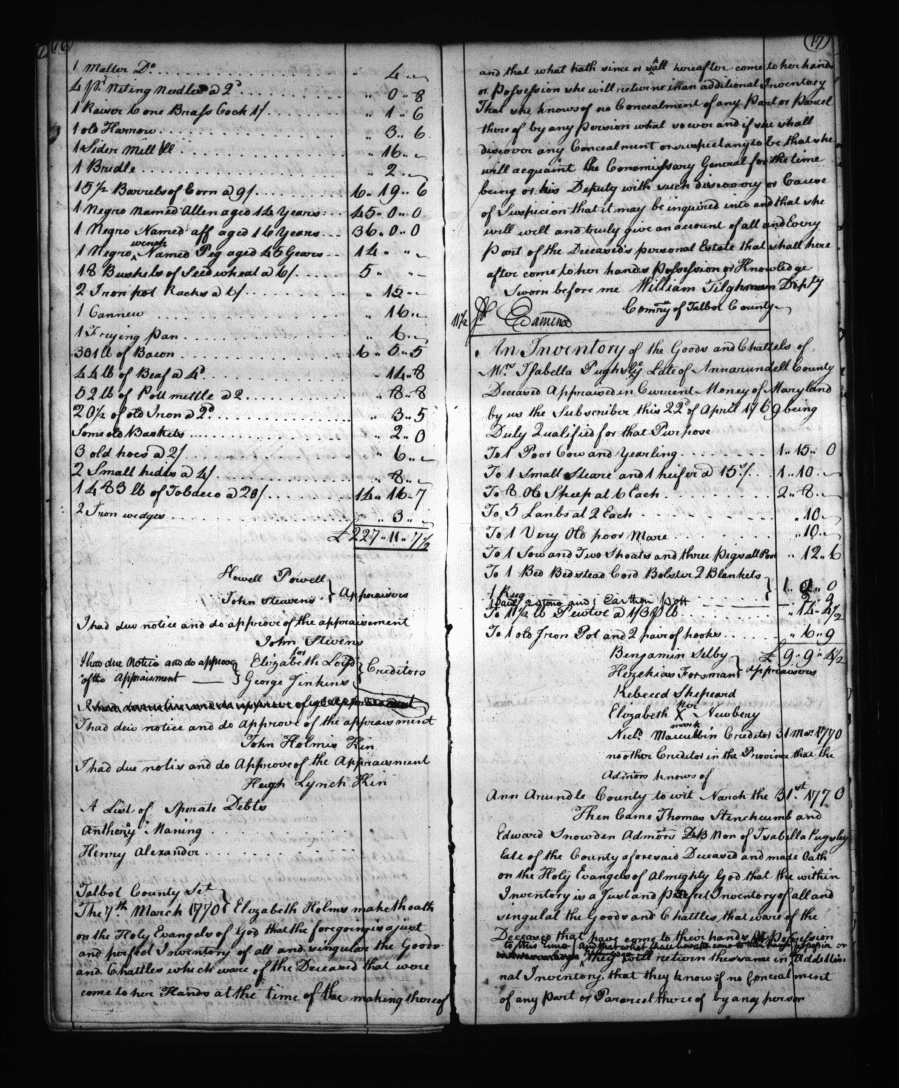 16
1 Matter Do ... " 4 .. ~
4 pr Niting Needles a 2d ... " 0 .. 8
1 Raisor & one Brass Cock 1/ ... " 1 .. 6
1 old Harrow ... " 3 .. 6
1 Sider Mill ... " 16 .. ~
1 Bridle ... " 2 .. ~
15 1/2 Barrels of Corn a 9/ ... 6 .. 19 .. 6
1 Negro Named Allen aged 14 Years ... 45 .. 0 .. 0
1 Negro Named aff aged 16 Years ... 36 .. 0 .. 0
1 Negro wench Named Peg aged 46 Years ... 14 .. " .. ~
18 Bushels of Seed wheat a 6/ ... 5 " .. ~
2 Iron pot Racks a 6/ ... " 12 .. ~
1 Cannew ... " 16 .. ~
1 Frying Pan ... " 6 .. ~
301 lb of Bacon ... 6 .. 5 .. 5
44 lb of Beaf a 4d ... " 14 .. 8
52 lb of Pott mettle a 2 ... " 8 .. 8
20 1/2 of old Iron a 2d ... " 3 .. 5
Some old Baskets ... " 2 .. 0
3 old hoes a 2/ ... " 6 .. ~
2 Small hides a 4/ ... " 8 .. ~
1483 lb of Tobacco a 20/ ... 14 .. 16 .. 7
2 Iron wedges ... " 3 .. ~
£ 227 .. 11 .. 7 1/2
Howell Powell
John Steavens } Appraisers
I had due notice and do approve of the appraisement
John Stivens
for
I had due Notice and do approve } Elizabeth Loyd } Creditors
of the Appraisment } George Jinkins
I had diw notice and do Approve of the appraisment
John Holmes Kin
I had due notis and do Approve of the Appraisment
Hugh Lynch Kin
A List of Sperate Debts
Anthony Maning
Henry Alexander
Talbot County Set
The 7th March 1770 } Elizabeth Holms maketh oath
on the Holy Evangels of God that the foregoing is a just
and perfect Inventory of all and singular the Goods
and Chattles which ware of the Deceased that were
come to her Hands at the time of the making thereof
17
and that what hath since or shall hereafter come to her hands
or Possession she will return in an additional Inventory
That she knows of no Concealment of any Part or Parcel
there of by any Person what so ever and if she shall
discover any Concealment or suspect any to be that she
will acquaint the Commissary General for the time
being or his Deputy with such discovery or Cause
of Suspicion that it may be inquired into and that she
will well and truly give an account of all and Every
Part of the Deceased's personal Estate that shall here
after come to her hands Possession or Knowledge
Sworn before me William Tilghman Depty
Comry of Talbot County
11 1/2 Examined
An Inventory of the Goods and Chattels of
Mrs Isabella Pughsly Late of Annarundell County
Deceased Appraised in Current Money of Maryland
by us the Subscriber this 22d of April 1769 being
Duly Qualified for that Purpose
To 1 Poor Cow and Yearling ... 1 .. 15 .. 0
To 1 Small Steare and 1 heifer a 15/ ... 1 .. 10 .. ~
To 8 Old Sheep at 6 Each ... 2 .. 8 .. ~
To 5 Lambs at 2 Each ... " 10 .. ~
To 1 Very Old poor Mare ... " 10 .. ~
To 1 Sow and Two Shoats and three Pigs all Poor " 12 .. 6
To 1 Bed Bedstead Cord Bolster 2 Blankets
1 Rug
and 1 Earthen Pott ... " 2 .. 9
To 11 1/2 lb Pewter a 1/3 P lb ... " 14 .. 4 1/2
To 1 old Iron Pot and 2 pair of hooks ... " 6 .. 9
Benjamin Selby } £ 9 .. 9 .. 4 1/2
Hezekiah Forsman } appraisers
Rebecca Shepeard
her
Elizabeth X Newbery
mark
Nichs Maccubbin Creditor 31 Mar 1770
no other Creditors in the Province that the
Admors knows of
Ann Arundle County to wit March the 31st 1770
Then Came Thomas Stenchcumb and
Edward Snowden Admors DB Non of Isabella Pugsley
Late of the County aforesaid Deceased and made Oath
on the Holy Evangels of Almighty God that the within
Inventory is a Just and Perfect Inventory of all and
singulal the Goods and Chattles that ware of the
Deceased that have come to their hands or Possession
to this time and that what shall hereafter come to their hands possession or
they will return the same in Addittio
nal Inventory that they know of no Concealment
of any Part or Parcel thereof by any person